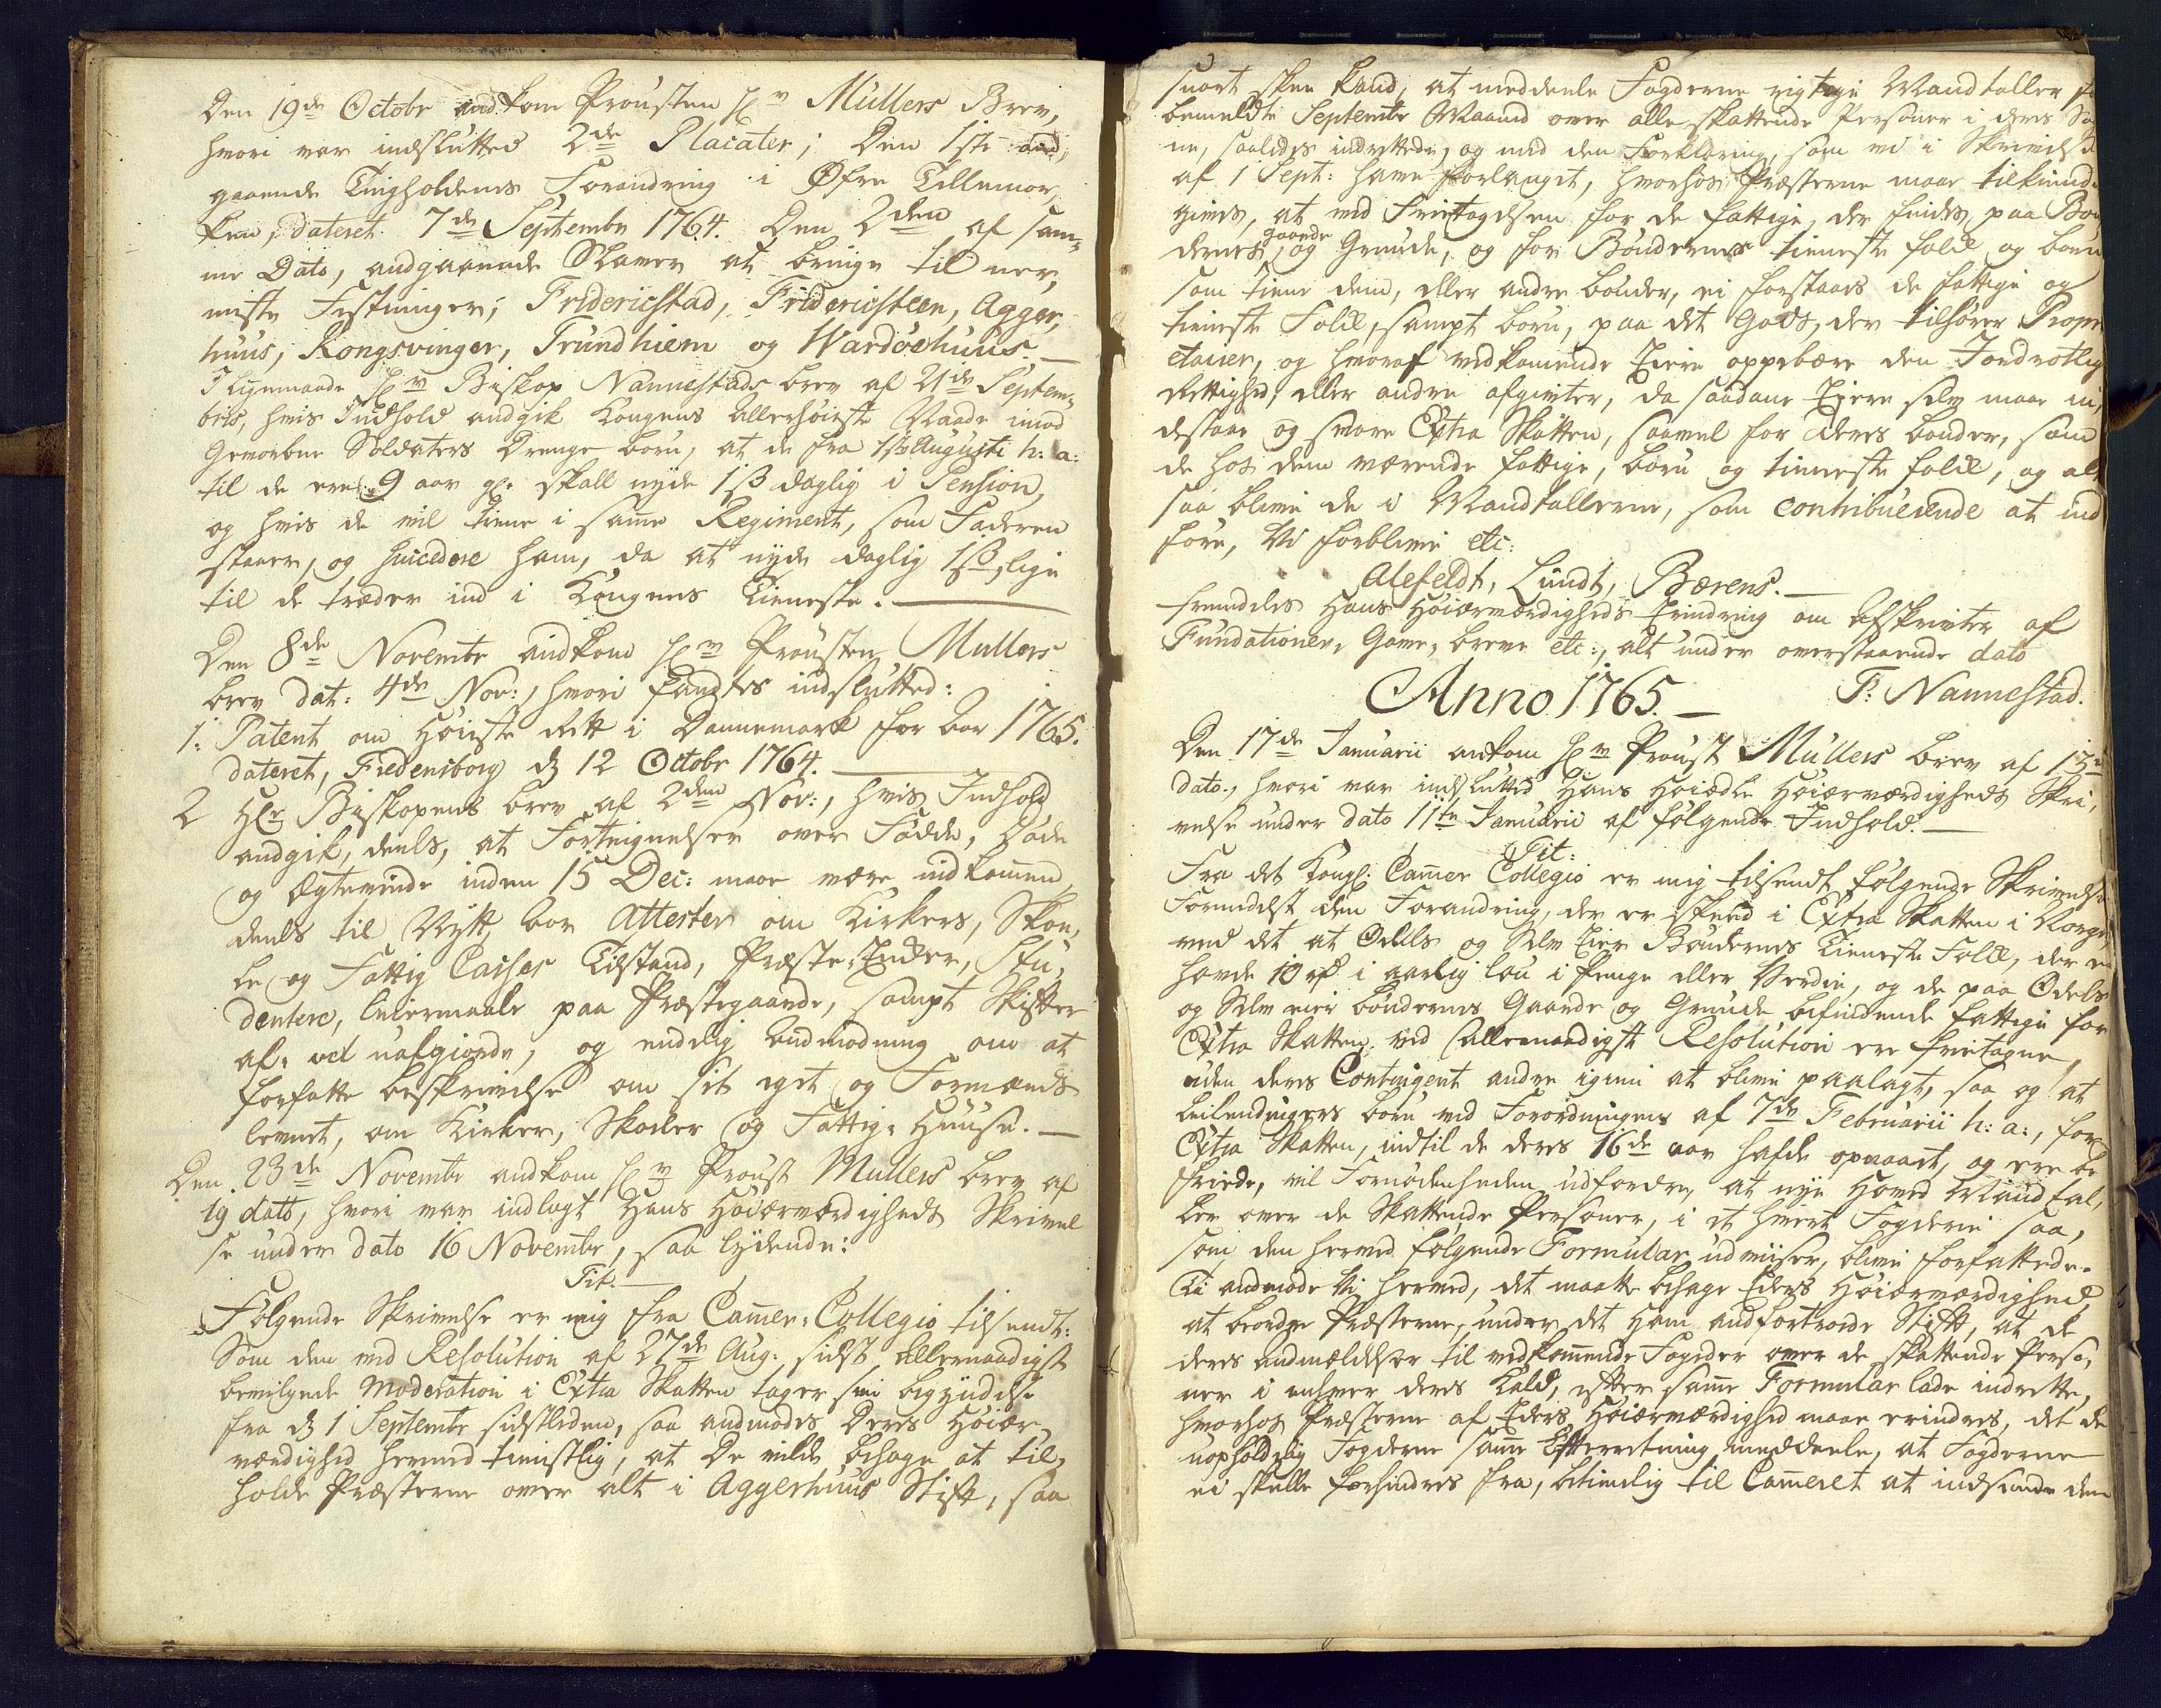 Den 19de Octobr andkom Prousten Hr Müllers Brev,
hvori var indslutted 2de Placater; Den 1ste and,
gaaende Tingholdens Forandring i Øfre Tillemar,
ken, dateret 7de Septembr 1764. Den 2den af sam,
me Dato, andgaaende Slaver at bringe til ner,
meste Festninger; Fridericstad, Fridericsteen, Agger,
huus, Kongsvinger, Trundhiem og Wardöehuus. —
I ligemaade Hr Biskop Nannestads brev af 21de Septem,
bris, hvis Indhold andgik Kongens Allerhøieste Naade imod
Gevorbne Soldaters Drenge börn, at de fra 1ste Augusti h: a:
til de ere 9 aar gl. skall nyde 1 ß daglig i Pension,
og hvis de vil tiene i samme Regiment, som Faderen
staaer, og succedere ham, da at nyde daglig 1 ß, lige
til de træder ind i Kongens Tieneste. —
Den 8de Novembr andkom Hr Prousten Mullers
brev dat: 4de Nov:, hvori fandtes indslutted:
1: Patent om Høieste Rett i Dannemark for Aar 1765.
dateret, Fredensborg d 12 Octobr 1764. —
2 Hr Biskopens brev af 2den Nov:, hvis Indhold
andgik, deels, at Fortegnelser over Fødde, Døde
og Ægteviede inden 15 Dec: maae være indkommen,
deels til Nytt Aar Attester om Kirkers, Skou,
le og Fattig Casser Tilstand, Præste-Enker, Stu,
dentere, leiermaale paa Præstegaarde, sampt Skifter
af: vel uafgiorde, og endelig Andmodning om at
forfatte beskrivelse om sit eget og Formænds
levnet, om Kirker, Skoeler og Fattig-Huuse. —
Den 23de Novembr andkom Hr Proust Mullers brev af
19 dato, hvori var indlagt Hans Höiærværdigheds Skrivel
se under dato 16 Novembr, saa lydende:
Tit: —
Følgende Skrivelse er mig fra Cammer-Collegio tilsendt:
Som den ved Resolution af 27de Aug: sidst allernaadigst
bevilgede Moderation i Extra Skatten tager sin begyndelse
fra d 1 Septembr sidstleden, saa andmodes Deres Höiær,
værdighed herved tienistlig, at De vilde behage at til,
holde Præsterne over alt i Aggerhuus Stift, saa
snart skee kand, at meddeele Fogderne rigtige Mandtaller
bemeldte Septembr Maaned over alle skattende Personer i deres
ne, saaledes indrettede, og med den Forklaring, som vi i Skrivelse
af 1 Sept: have forlanget, hvorhos Præsterne maae tilkiende
gives, at ved Fritagelsen for de fattige, der findes paa
dernes gaarde og Grunde, og for Bøndernes tieneste folk og børn
som tiene dem, eller andre bønder, ei forstaaes de fattige og
tieneste Folk, sampt børn, paa det Gods, der tilhører Propri
etairer, og hvoraf vedkommende Eiere oppebære den Jordrotlig
Rettighed, eller andre afgivter, da saadane Eiere selv maae in,
destaae og svare Extra Skatten, saavel for deres bønder, som
de hos dem værende fattige, børn og tieneste folk, og alt
saa blive de i Mandtallerne, som contribuerende at ind
føre, Vi forblive etc:
Alefeldt, Lundt, Bærens. —
fremdeles Hans Höiærværdigheds Erindring om Afskrivter af
Fundationer, Gave, breve etc:, alt under overstaaende dato
F: Nannestad.
Anno 1765. —
Den 17de Januarii ankom Hr Proust Müllers brev af 13de
dato., hvori var indslutted Hans Høiædle Høiærværdigheds Skri,
velse under dato 11te Januarii af følgende Indhold. —
Tit:
Fra det Kongl: Cammer Collegio er mig tilsendt følgende Skrivelse
Formedelst den Forandring, der er skeed i Extra Skatten i Norge
ved det at Odels og Selv Eier Bøndernes Tieneste Folk, der ei
havde 10 rd i aarlig løn i penge eller Verdie, og de paa Odels
og Selv eier bøndernes Gaarde og Grunde befindende fattige for
Extra Skatten, ved Allernaadigst Resolution ere fritagne,
uden deres Contingent andre igien at blive paalagt, saa og at
leilendingers børn ved Forordningen af 7de Februarii h: a:, for
Extra Skatten, indtil de deres 16de aar hafde opnaaet, og ere be
friede, vil Fornødenheden udfordre, at nye Hoved Mandtal,
ler over de Skattende Personer, i et hvert Fogderie saa,
som den herved følgende Formular udviiser, blive forfattede.
Thi andmode Vi herved, det maatte behage Eders Höiærværdighed
at beordre Præsterne, under det Ham andfortroede Stift, at de
deres andmældelser til vedkommende Fogeder over de skattende Perso,
ner i enhver deres Kald, efter samme Formular lade indrette,
hvorhos Præsterne af Eders Höiærværdighed maae erindres, det de
uopholdelig Fogderne samme Efterretning meddeele, at Fogderne
ei skulle forhindres fra, betimelig til Cammeret at indsende dem